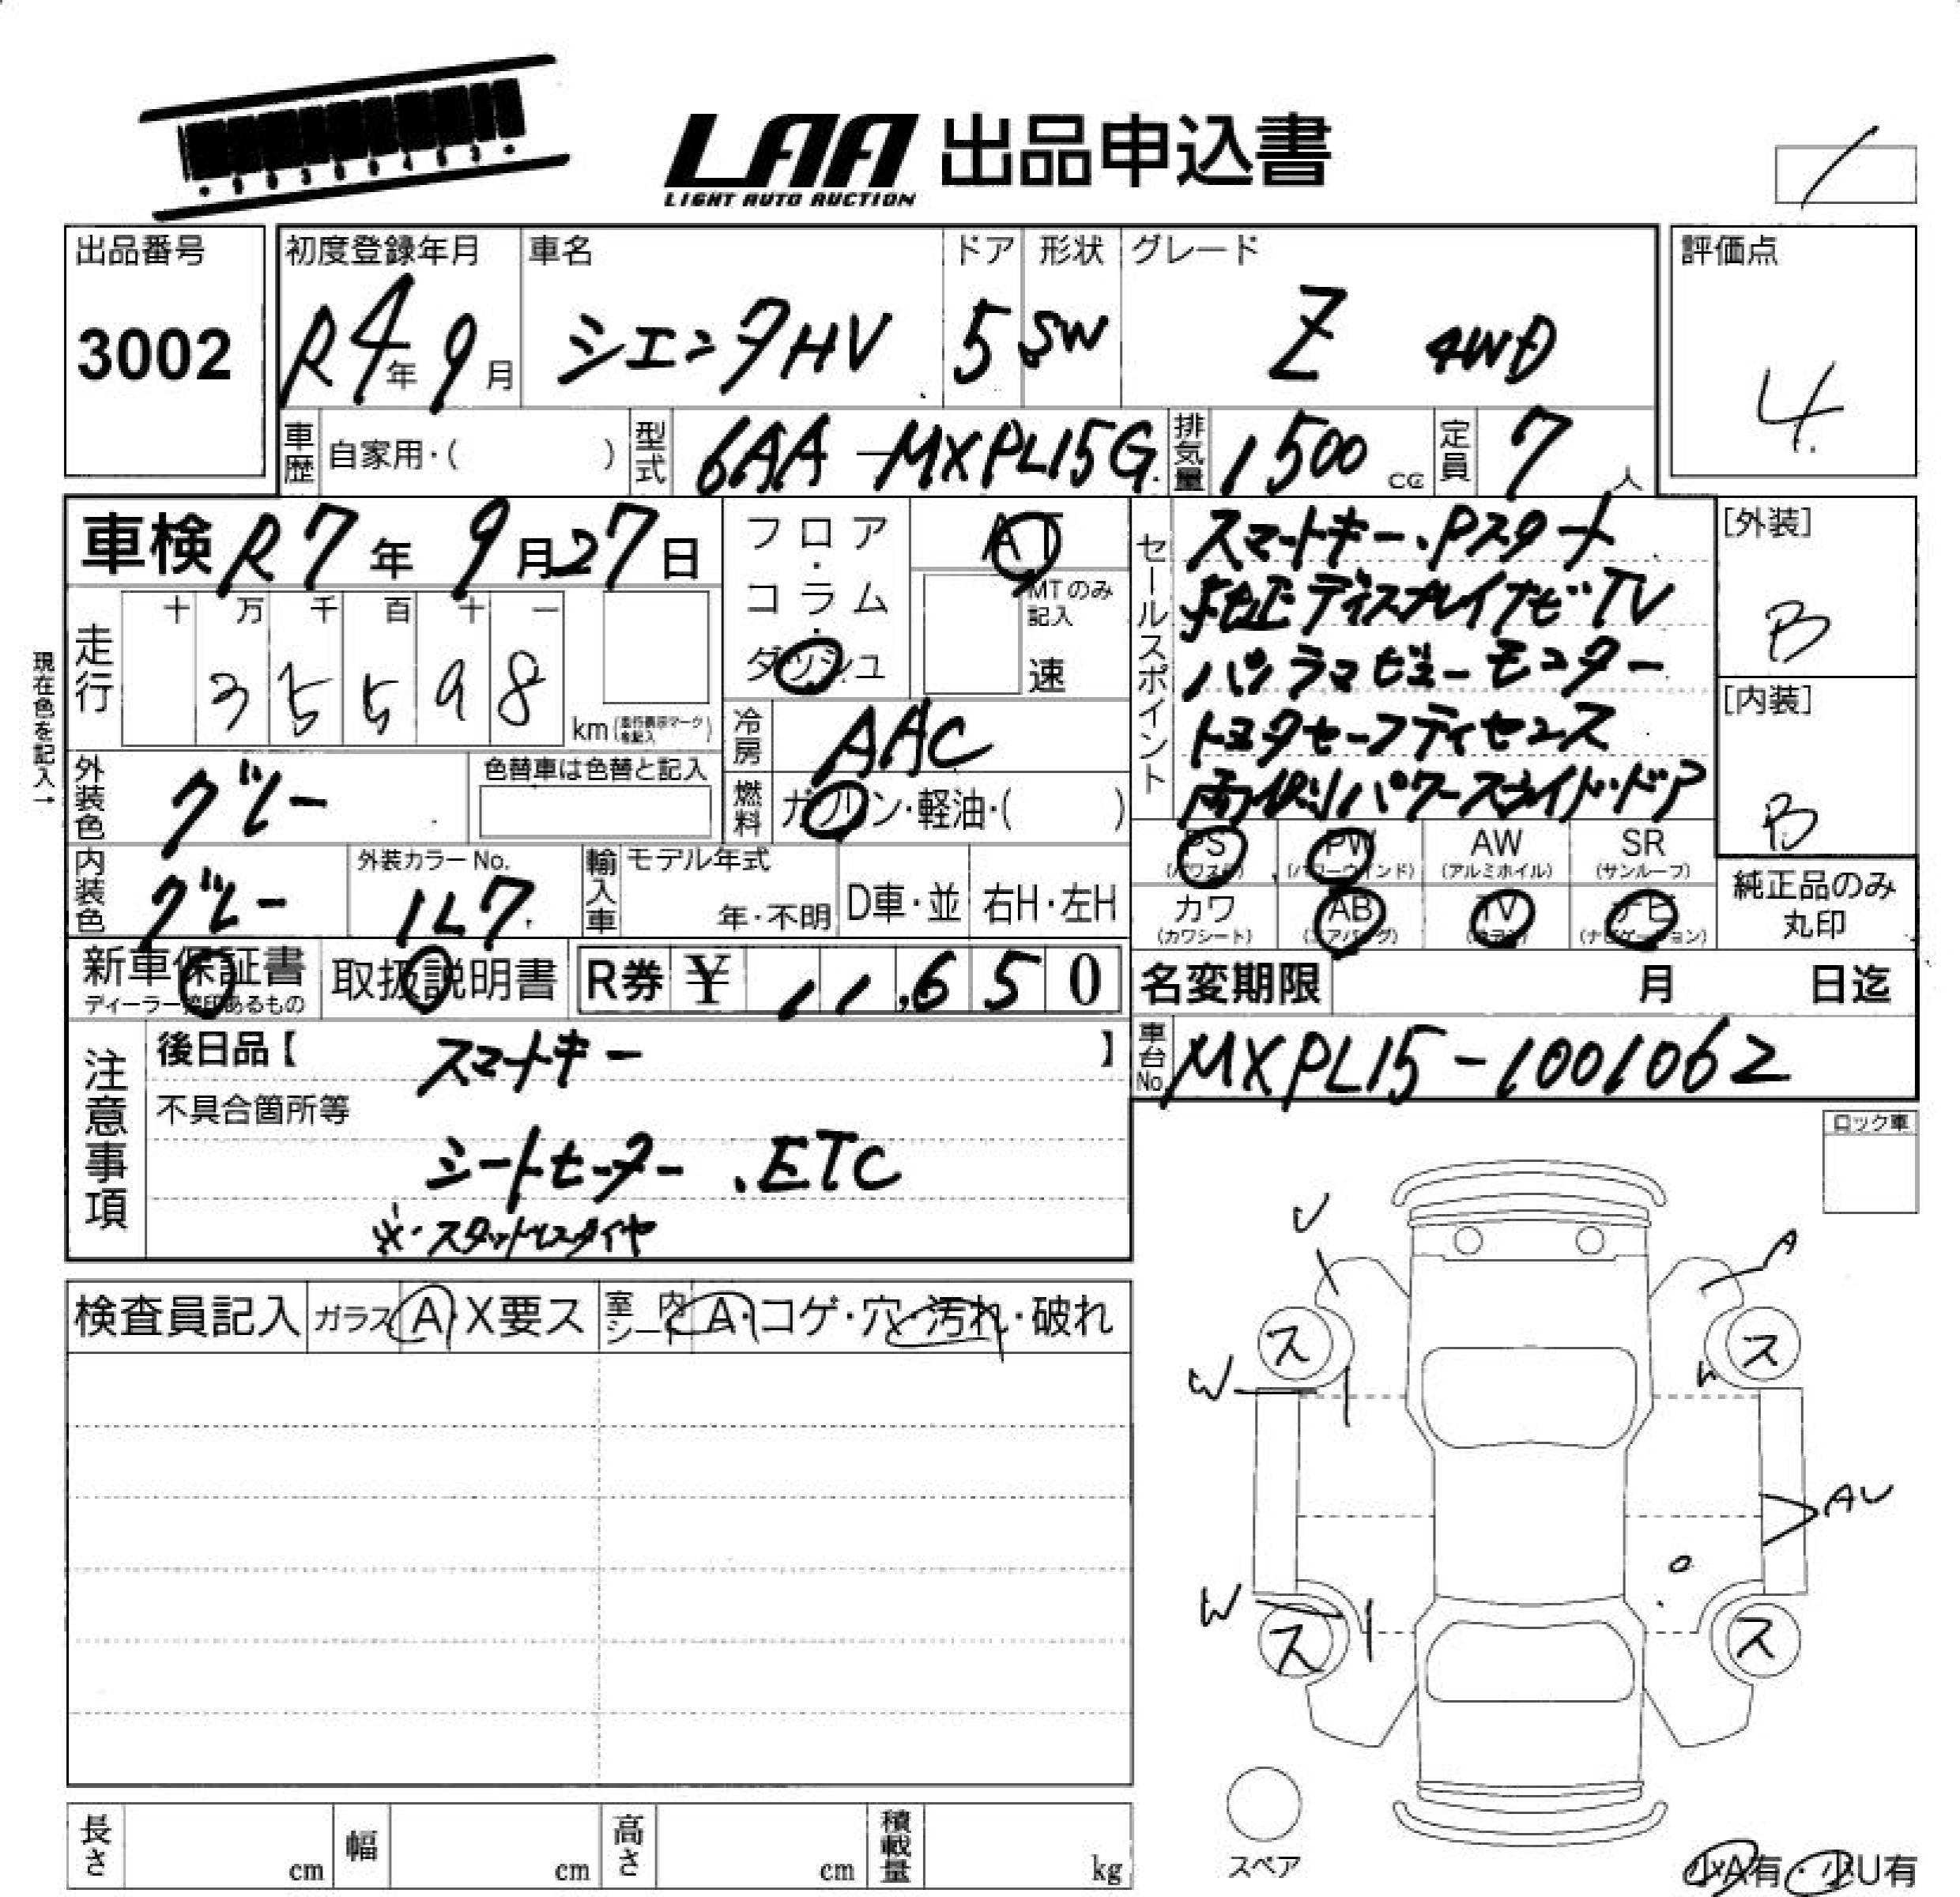 LAA 出品申込書
LIGHT AUTO AUCTION
出品番号
3002
初度登録年月
R4年9月
車名
シエンタHV
ドア
5
形状
SW
グレード
Z 4WD
評価点
4
車歴 自家用・( )
型式 6AA-MXPL15G
排気量 1500 cc
定員 7人
車検 R7年9月27日
現在色を記入→
走行
十 万 千 百 十 一
3 5 5 9 8
km
フロア・コラム・ダッシュ
AT
MTのみ記入
速
冷房 AAC
燃料 ガソリン・軽油・( )
セールスポイント
スマートキー・Pスタート
純正ディスプレイナビTV
パノラマビューモニター
トヨタセーフティセンス
両側パワースライドドア
[外装]
B
[内装]
B
外装色 グレー
色替車は色替と記入
内装色 グレー
外装カラーNo.
1L7
輸入車 モデル年式
年・不明
D車・並
右H・左H
PS
PW
AW
(アルミホイル)
SR
(サンルーフ)
カワ
(カワシート)
AB
TV
ナビ
純正品のみ
丸印
新車保証書
取扱説明書
R券 ¥ 11,650
名変期限 月 日迄
車台No. MXPL15-1001062
注意事項
後日品【 スマートキー 】
不具合箇所等
シートヒーター .ETC
※・スタッドレスタイヤ
ロック車
検査員記入 ガラス A・X要ス 室内シート A・コゲ・穴・汚れ・破れ
U
A
ス
ス
W
W
AU
W
ス
ス
スペア
長さ cm 幅 cm 高さ cm 積載量 kg
小A有・小U有